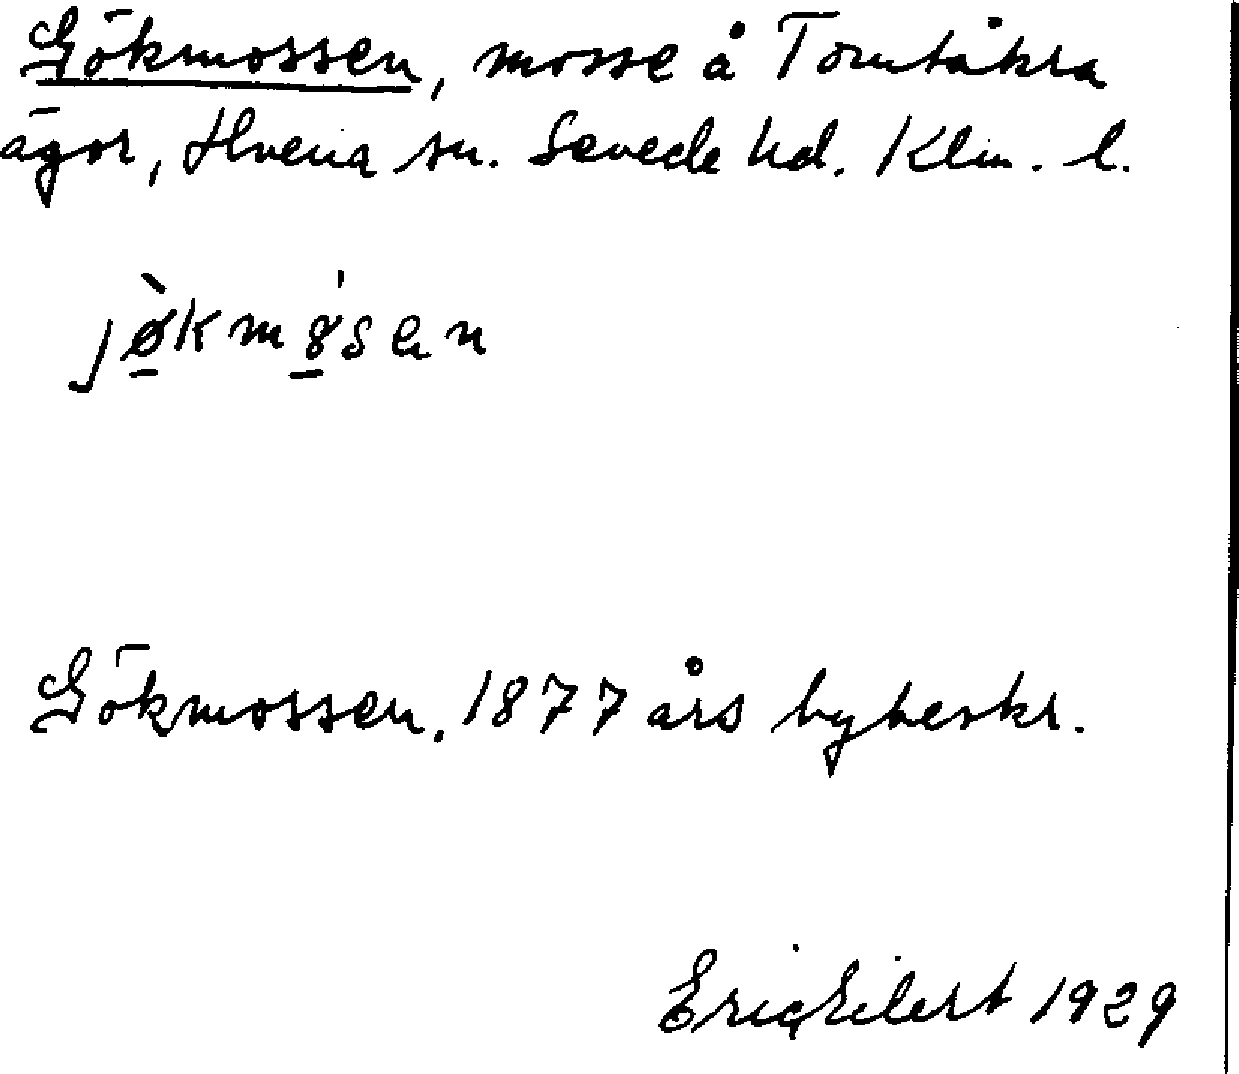 Gökmossen, mosse å Tomtåkra
ägor, Hvena sn. Sevede hd. Klm. l.
jø̠̀kmɵ̠́sen
Gökmossen. 1877 års bybeskr.
Eric Eilert 1929